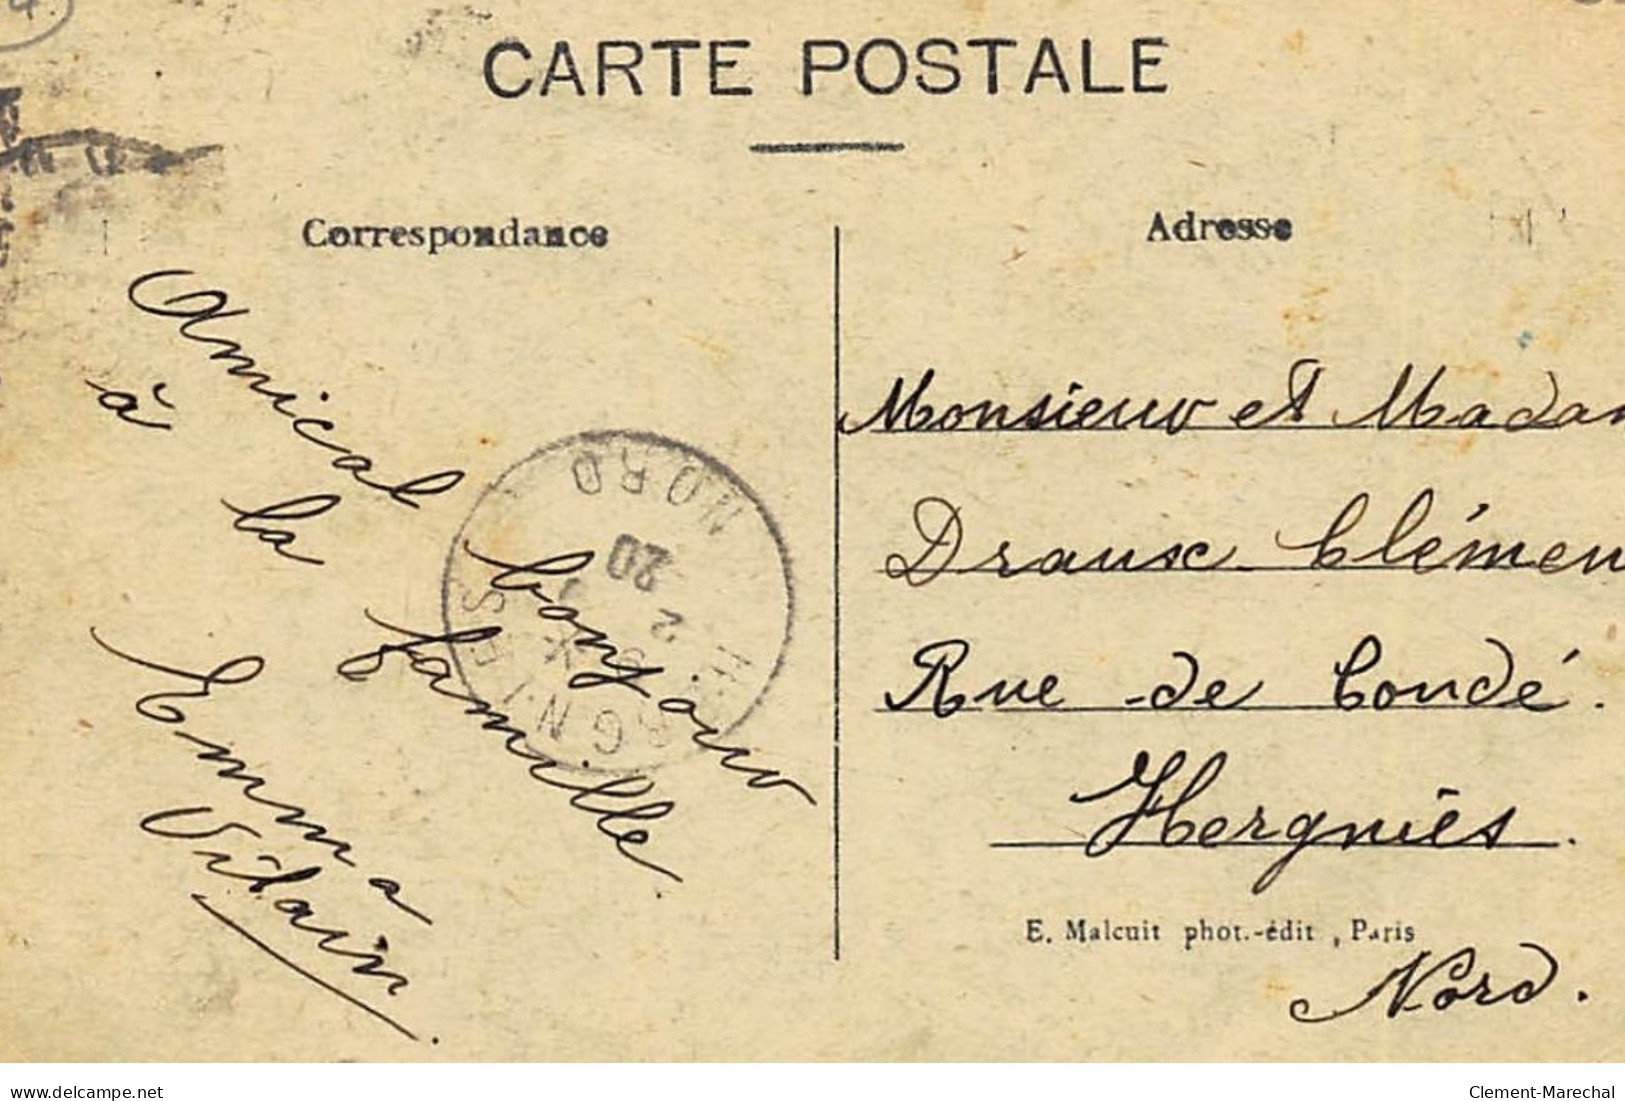 CARTE POSTALE
Correspondance
Amical bonjour
à la famille.
Emma
Vilain.
NORD
20
2
HERGNIES
Adresse
Monsieur et Madam
Draux Clémen
Rue de Condé.
Hergnies.
E. Malcuit phot.-édit, Paris
Nord.
www.delcampe.net
Clement-Marechal